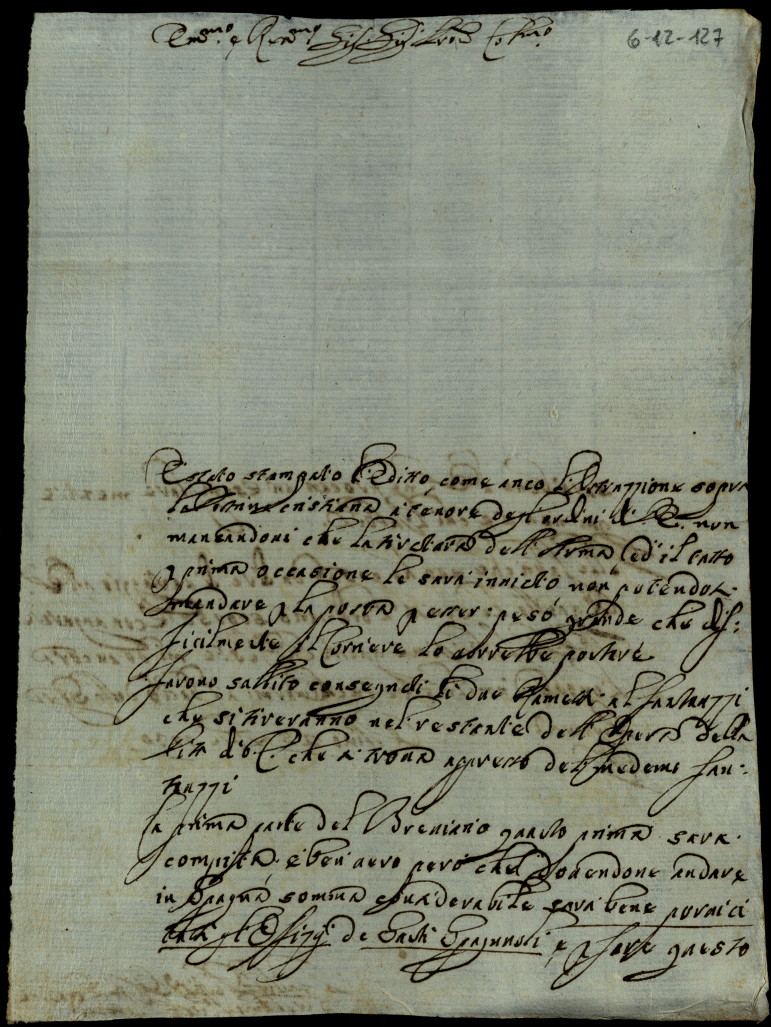 Em.mo e Rev.mo Sig. Sig. Pron Col.mo
6-12-127
È stato stampato l'Editto, come anco l'Istruzzione sopra
la Dottrina cristiana a tenore degl'ordini di V.E. non
mancandoni che la tiratura dell'Arma, ed il tutto
p prima occasione le sarà inviato non potendosi
mandare p la posta p esser peso grande che dif:
ficilmente il Corriere lo vorrebbe portare
Furono subbito consegnati li due Rametti al Fantuzzi
che si tireranno nel restante dell'Opera della
Vita di che si trova appresso del medemo Fan:
tuzzi
La prima parte del Breviario quanto prima sarà
compita, è ben vero però che dovendone andare
in Spagna somma considerabile sarà bene porvici
tutti gl'Offizij de Santi Spagnuoli, e p fare questo